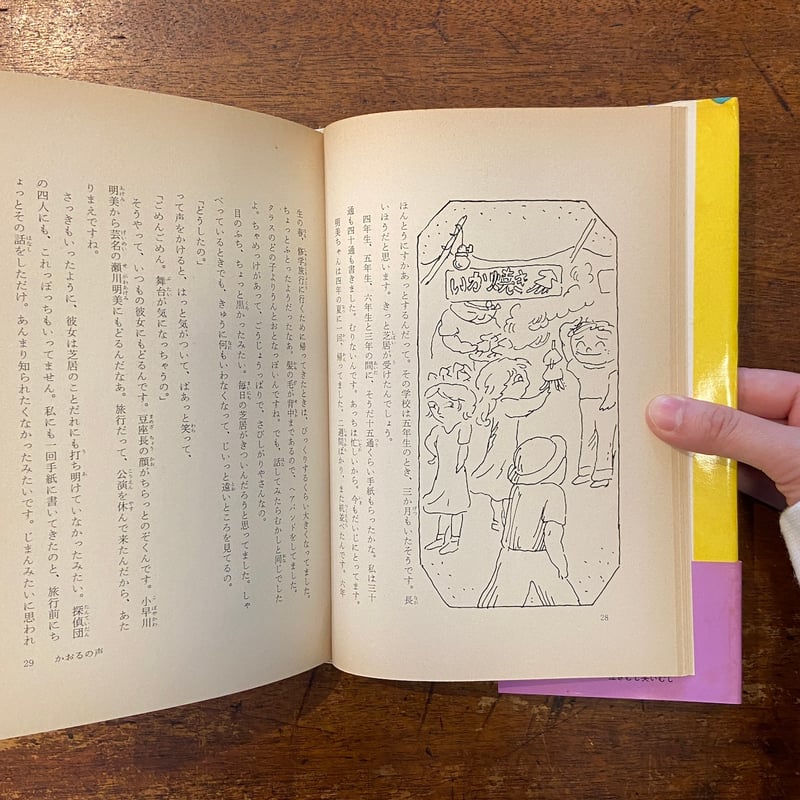 いか焼き
ほんとうにすかあっとするんだって。その学校は五年生のとき、三か月もいたそうです。長
いほうだと思います。きっと芝居が受けたんでしょう。
四年生、五年生、六年生と三年の間に、そうだ十五通くらい手紙もらったかな。私は三十
通も四十通も書きました。むりないんです。あっちは忙しいから。今もだいじにとってます。
明美ちゃんは四年の夏に一回、帰ってました。二週間ばかり、また机並べたんです。六年
28
生の春、修学旅行に行くために帰ってきたときは、びっくりするくらい大きくなってました。
ちょっとふとったようだったなあ。髪の毛が背中まであるので、ヘアバンドをしてました。
クラスのどの子よりうんとおとなっぽいんですね。でも、話してみたらむかしと同じでした
よ。ちゃめっけがあって、ごうじょうっぱりで、さびしがりやさんなの。
目のふち、ちょっと黒かったみたい。毎日の芝居がきついんだろうと思ってました。しゃ
べっているときでも、きゅうに何もいわなくなって、じいっと遠いところを見てるの。
「どうしたの。」
って声をかけると、はっと気がついて、ぱあっと笑って、
「ごめんごめん。舞台が気になっちゃうの。」
そうやって、いつもの彼女にもどるんです。豆座長の顔がちらっとのぞくんです。小早川
明美から芸名の瀬川明美にもどるんだなあ。旅行だって、公演を休んで来たんだから、あた
りまえですね。
さっきもいったように、彼女は芝居のことだれにも打ち明けていなかったみたい。探偵団
の四人にも、これっぽっちもいってません。私にも一回手紙に書いてきたのと、旅行前にち
ょっとその話をしただけ。あんまり知られたくなかったみたいです。じまんみたいに思われ
29
かおるの声